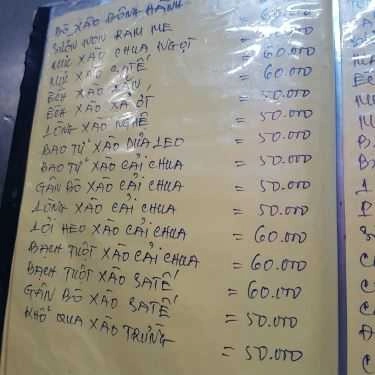 BÒ XÀO BÔNG HÀNH
SƯỜN NON RAM ME = 60.000
MỰC XÀO CHUA NGỌT = 60.000
MỰC XÀO SATẾ = 60.000
ẾCH XÀO = 50.000
ẾCH XÀO XẢ ỚT = 50.000
LÒNG XÀO NGHỆ = 50.000
BAO TỬ XÀO DƯA LEO = 50.000
BAO TỬ XÀO CẢI CHUA = 50.000
GÂN BÒ XÀO CẢI CHUA = 50.000
LÒNG XÀO CẢI CHUA = 50.000
LƯỠI HEO XÀO CẢI CHUA = 60.000
BẠCH TUỘT XÀO CẢI CHUA = 60.000
BẠCH TUỘT XÀO SATẾ = 60.000
GÂN BÒ XÀO SATẾ = 50.000
KHỔ QUA XÀO TRỨNG = 50.000